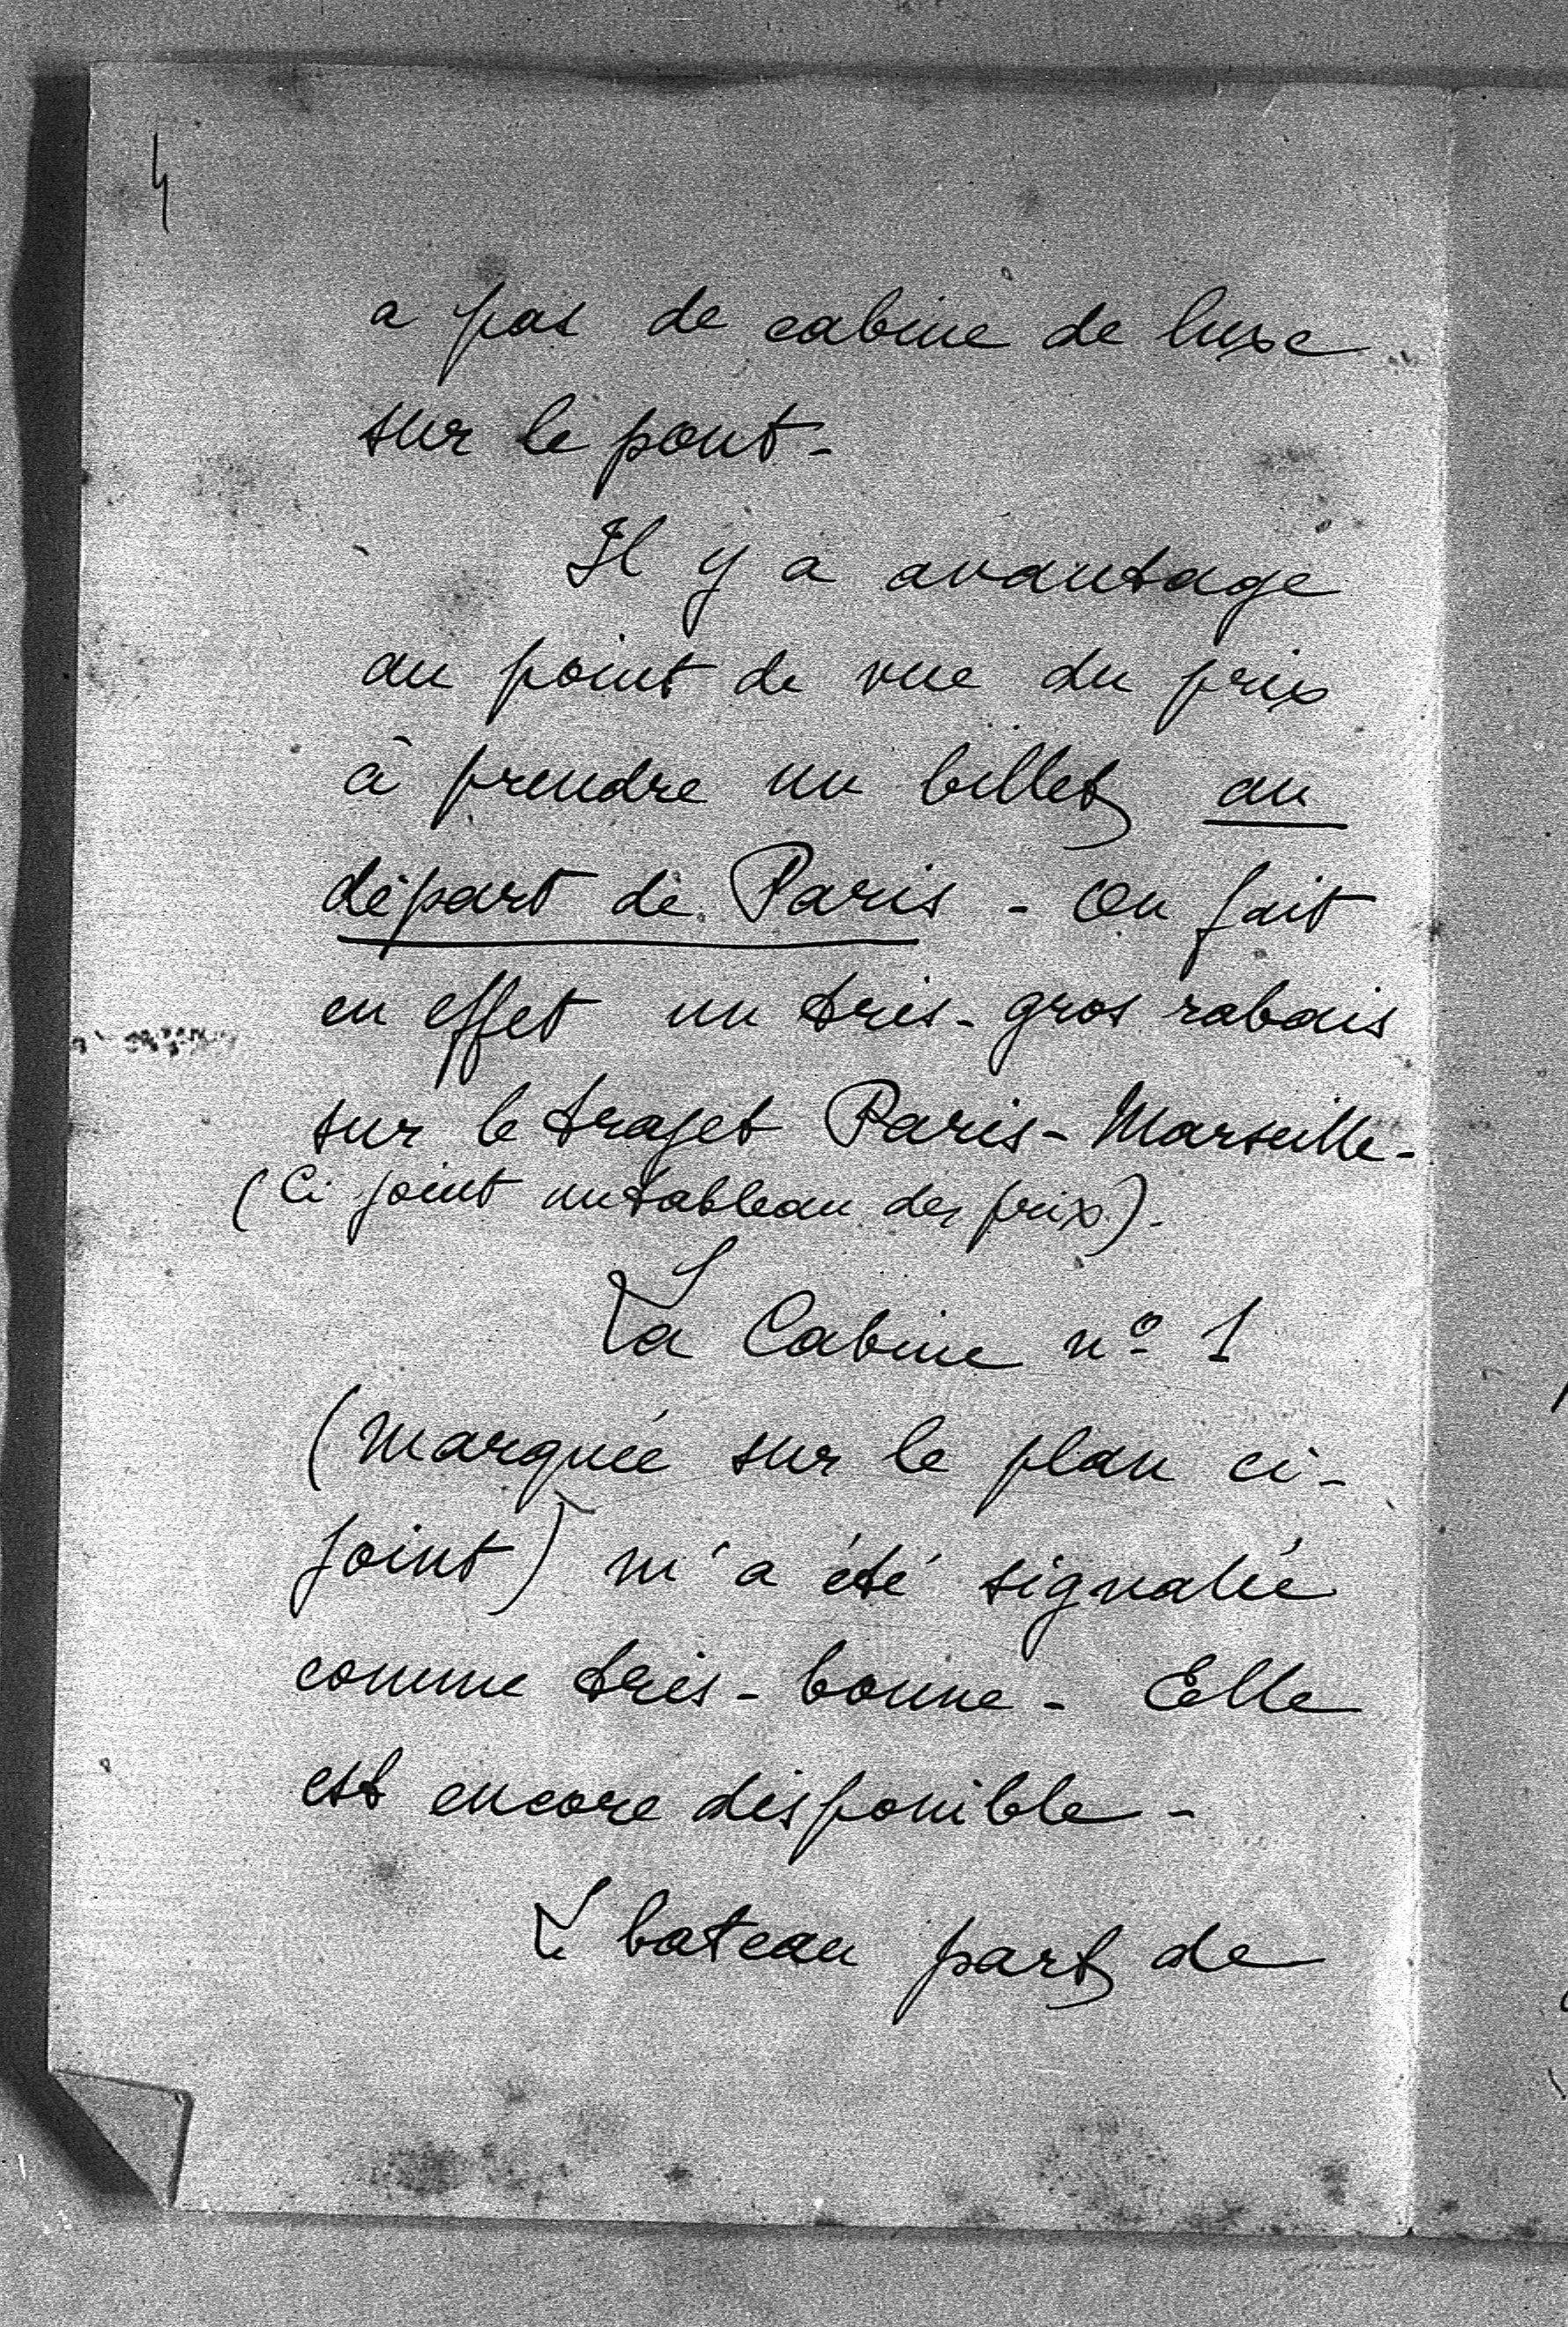 4
a pas de cabine de luxe
sur le pont -
Il y a avantage
au point de vue du prix
à prendre un billet au
départ de Paris - On fait
en effet un très-gros rabais
sur le trajet Paris-Marseille -
(Ci joint un tableau des prix.) -
La Cabine nº 1
(marquée sur le plan ci-
joint) m'a été signalée
comme très-bonne - Elle
est encore disponible -
Le bateau part de